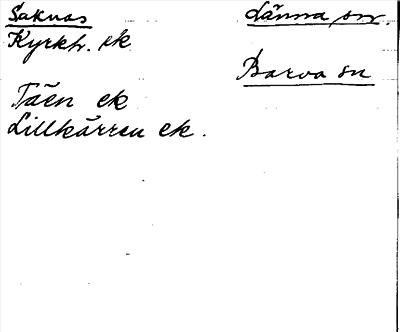 Saknas
Länna sn.
Kyrkh. ek
Barva sn
Täen ek
Lillkärren ek.